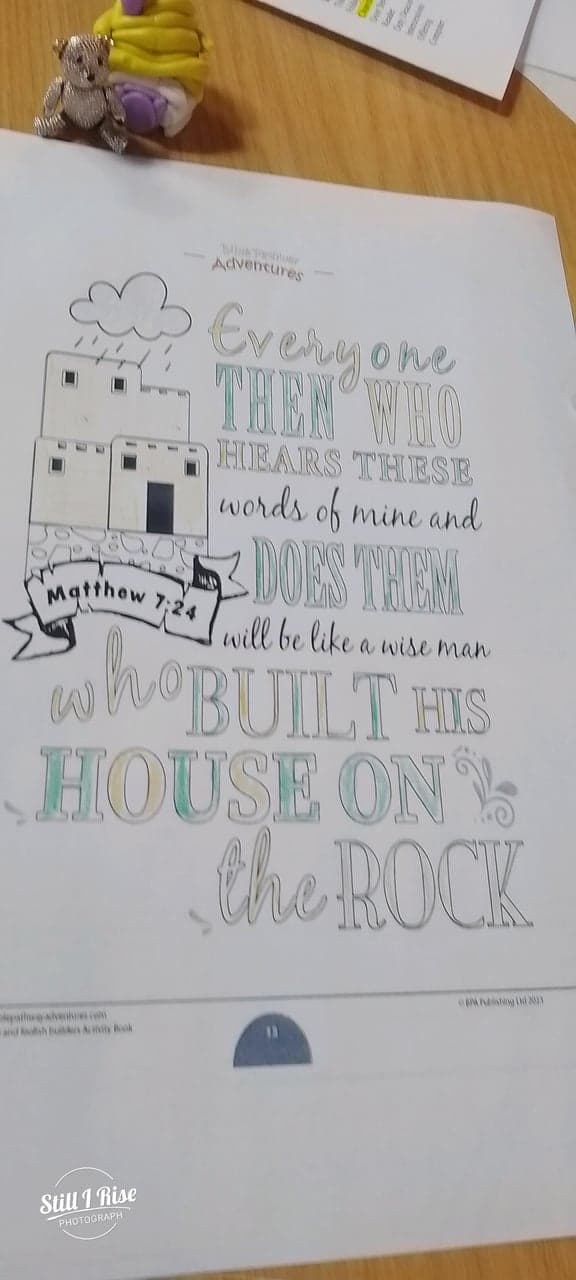 Adventures
Everyone
THEN WHO
HEARS THESE
words of mine and
DOES THEM
Matthew 7:24
will be like a wise man
who BUILT HIS
HOUSE ON
the ROCK
© BPA Publishing Ltd 2021
and foolish builders Activity Book
13
Still I Rise
PHOTOGRAPH